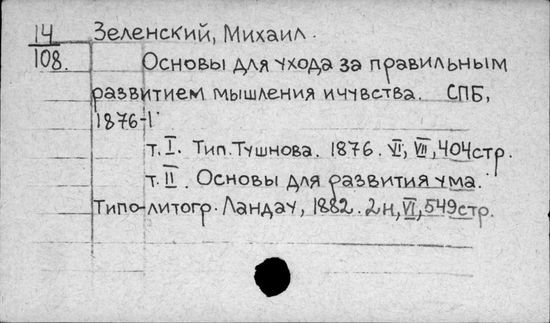 14 Зеленский, Михаил.
108. Основы для ухода за правильным
развитием мышления и чувства. СПБ,
1876-1
т. I. Тип. Тушнова. 1876. VI, VIII, 404 стр.
т. II. Основы для развития ума.
Типо-литогр. Ландау, 1882. 2н, VI, 549 стр.